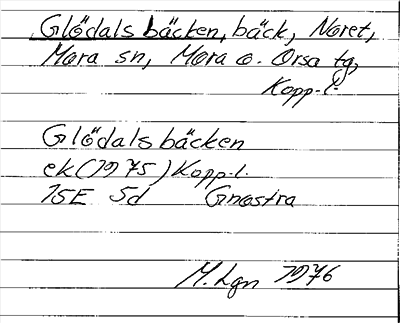 Glödals bäcken, bäck, Noret,
Mora sn, Mora o. Orsa tg,
Kopp.l.
Glödalsbäcken
ek(1975)Kopp.l.
15E 5d Gnostra
M.Lgn 1976